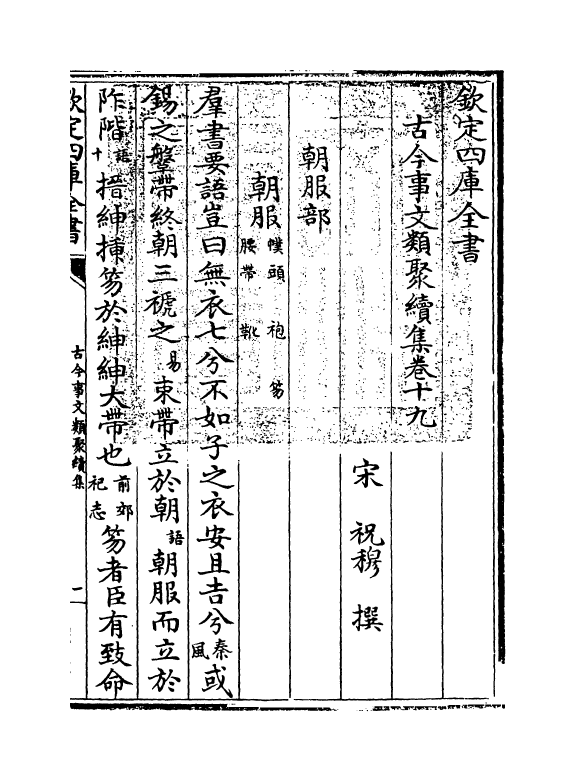 欽定四庫全書
古今事文類聚續集卷十九
宋 祝穆 撰
朝服部
朝服幞頭 袍 笏腰帶 靴
羣書要語豈曰無衣七兮不如子之衣安且吉兮秦風或
錫之鞶帶終朝三褫之易束帶立於朝語朝服而立於
阼階語十搢紳搢笏於紳紳大帶也前郊祀志笏者臣有致命
欽定四庫全書
古今事文類聚續集
二